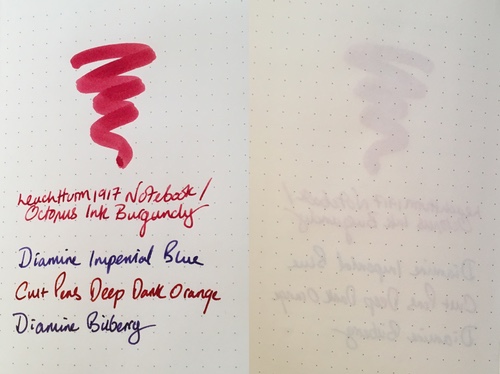 Leuchtturm1917 Notebook /
Octopus Ink Burgundy
Diamine Imperial Blue
Cult Pens Deep Dark Orange
Diamine Bilberry